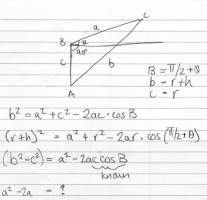 C
a
B
θ
90°
c
b
A
B = π/2 + θ
b = r+h
c = r
b² = a² + c² - 2ac · cosB
(r+h)² = a² + r² - 2ar · cos(π/2+θ)
(b²-c²) = a² - 2ac cosB
known
a² - 2a = ?